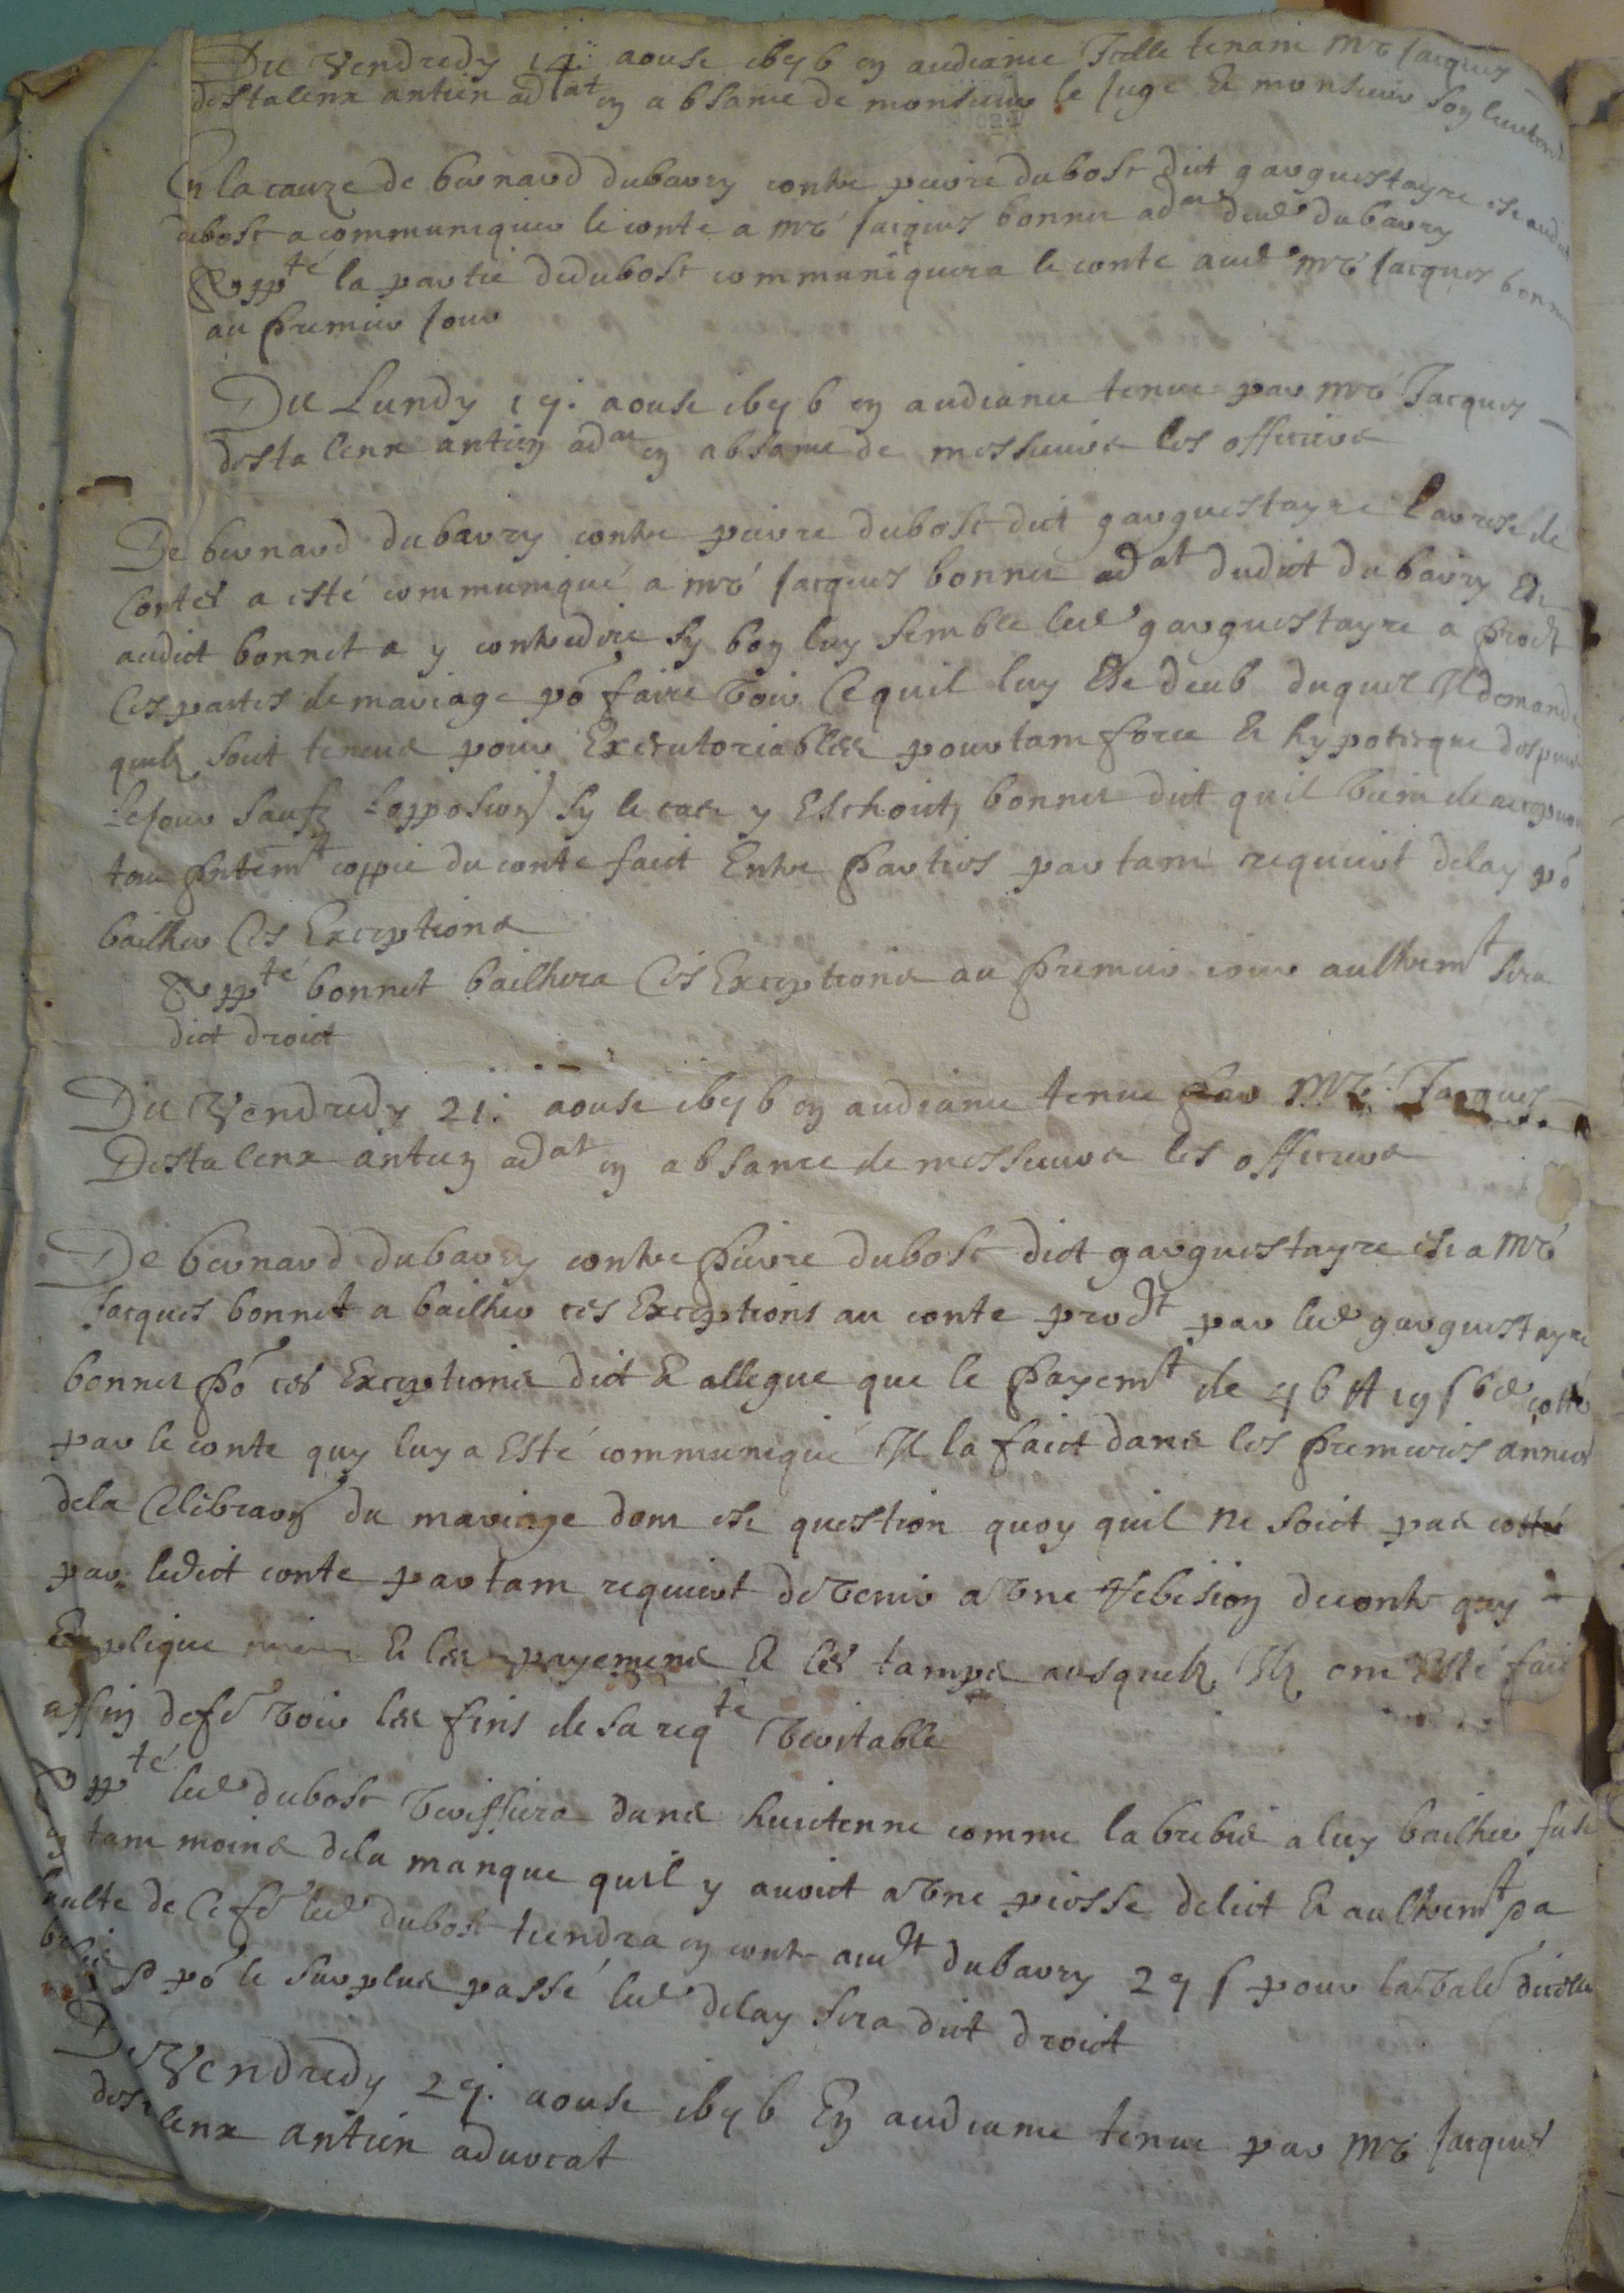 Du Vendredy 14: aoust ibyb en audiance Icelle tenant Mre Jacques
destalenx antien adat en absance de monsieur le Juge & monsieur son lieutenant
En la cauze de bernard dubarry contre pierre dubosc dict garguestayre est audit
dubosc a communiquer le conte a Mre Jacques bonnet adat dud dubarry
Appté la partie dedubosc communiquera le conte aud Mre Jacques bonnet
au premier Jour
Du Lundy 17. aoust ibyb en audiance tenue par Mre Jacques
destalenx antien adat en absance de messieurs les officiers
De bernard dubarry contre pierre dubosc dict garguestayre de
Contes a esté communiqué a Mre Jacques bonnet adat dudict dubarry Et
audict bonnet a y contredire sy bon luy semble led garguestayre a prodt
Ces pactes de mariage po faire voir Ce quil luy Est deub duquel Il demande
quils soict tenus pour Executoriables pourtant force & hypoteque despuis
leJour saufz loppozion sy le cas y Eschoict, bonnet dict quil vient de
tout pntemt coppie du conte faict Entre parties partant requiert delay po
bailher Ces Exceptions
Appté bonnet bailhera Ces Exceptions au premier iour aultremt sera
dict droict
Du Vendredy 21: aoust ibyb en audiance tenue par Mre Jacques
Destalenx antien adat en absance de messieurs les officiers
De bernard dubarry contre pierre dubosc dict garguestayre est a Mre
Jacques bonnet a bailher ces Exceptions au conte prodt par led garguestayre
bonnet po ces Exceptions dict & allegue que le payemt de 4b tt 19 s bd cotté
par le conte quy luy a Esté communiqué Il la faict dans les premieres annees
dela Celibraon du mariage dont est question quoy quil ne soict pas cotté
par ledict conte partant requiert de venir a vne Rebision deconte quy
Explique & les payemens & les tamps ausquels Ils ont Esté faict
affin defe voir les fins de sa reqte veritable
Appté led dubosc veriffiera dans huictenne comme la brebis a luy bailhee fust
en tant moins dela manque quil y auoict a vne piesse delict & aultremt pa
faulte de Cefe led dubosc tiendra en conte audt dubarry 29 s pour la valr dicelle
brebis & po le surplus passé led delay sera dict droict
Du Vendredy 29. aoust ibyb En audiance tenue par Mre Jacques
destalenx antien aduocat